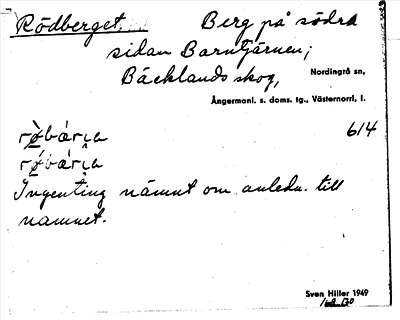 Rödberget. Berg på södra
sidan Barntjärnen;
Bäcklands skog, Nordingrå sn,
Ångermanl. s. doms. tg., Västernorrl. l.
614
Ingenting nämnt om anledn. till
namnet.
Sven Hiller 1949